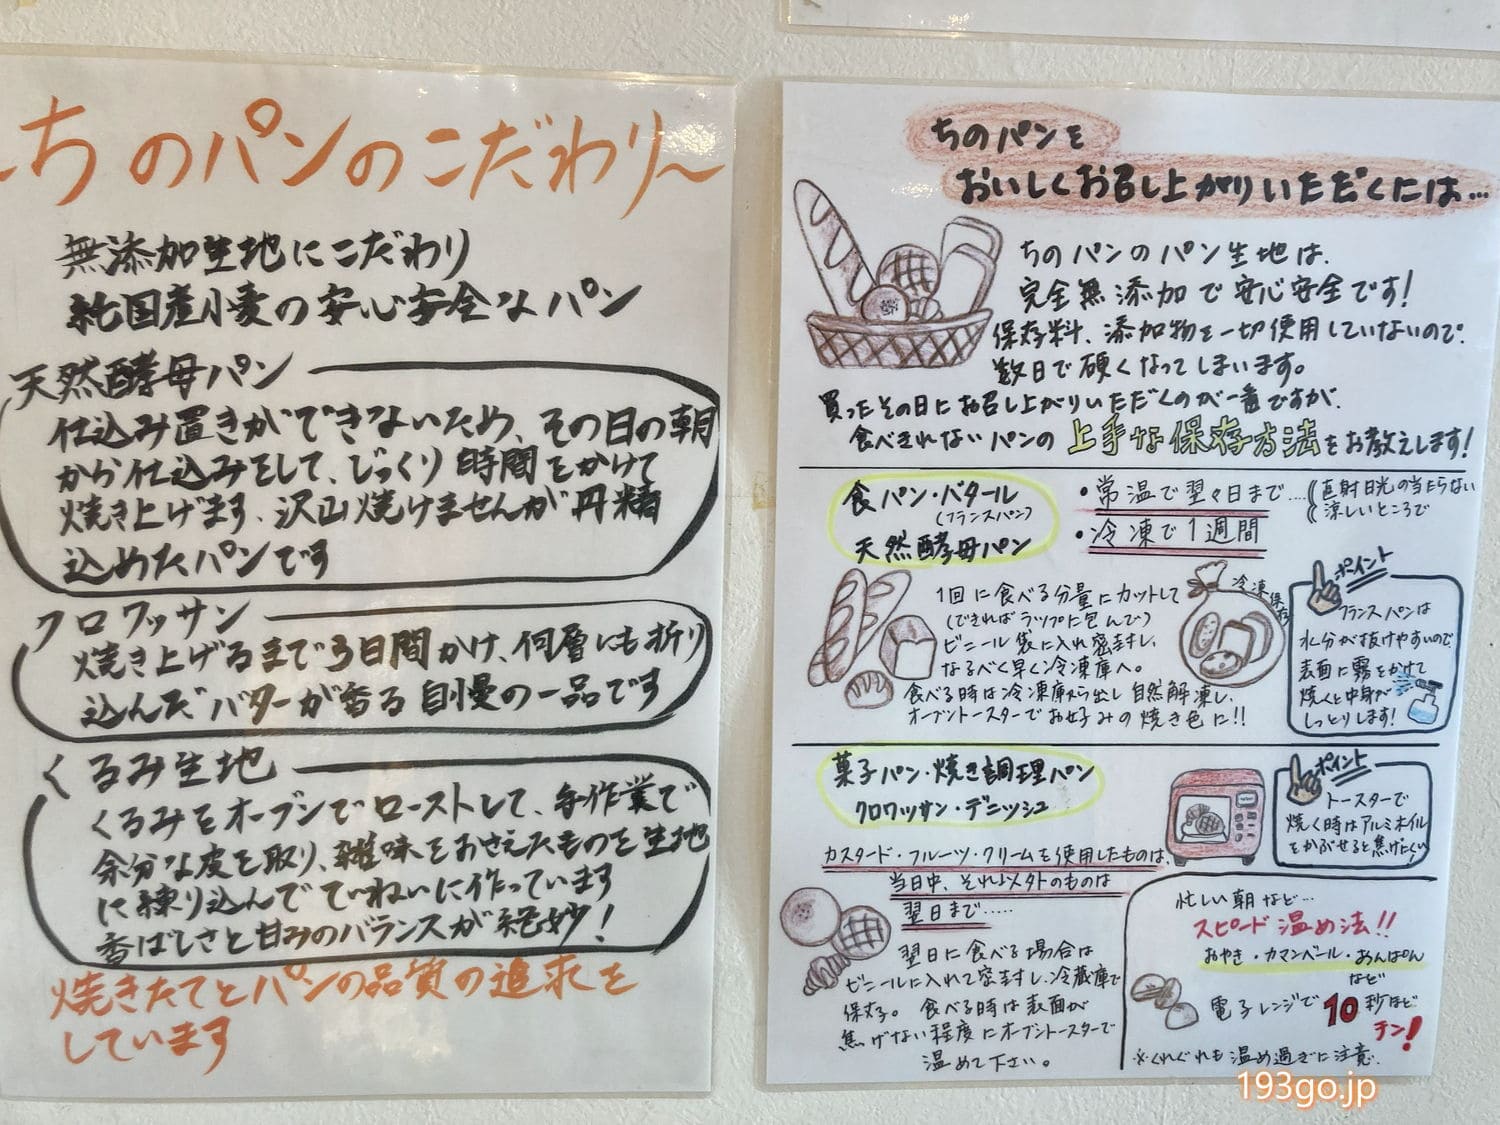 ~ちのパンのこだわり~
無添加生地にこだわり
純国産小麦の安心安全なパン
天然酵母パン
仕込み置きができないため、その日の朝
から仕込みをして、じっくり時間をかけて
焼き上げます、沢山焼けませんが丹精
込めたパンです
クロワッサン
焼き上げるまで3日間かけ、何層にも折り
込んだバターが香る自慢の一品です
くるみ生地
くるみをオーブンでローストして、手作業で
余分な皮を取り、雑味をおさえたものを生地
に練り込んでていねいに作っています
香ばしさと甘みのバランスが絶妙!
焼きたてとパンの品質の追求を
しています
ちのパンを
おいしくお召し上がりいただくには...
ちのパンのパン生地は、
完全無添加で安心安全です!
保存料、添加物を一切使用していないので、
数日で硬くなってしまいます。
買ったその日にお召し上がりいただくのが一番ですが、
食べきれないパンの上手な保存方法をお教えします!
食パン・バタール
(フランスパン)
天然酵母パン
・常温で翌々日まで....
直射日光の当たらない
涼しいところで
・冷凍で1週間
1回に食べる分量にカットして
(できればラップに包んで)
ビニール袋に入れ密封し、
なるべく早く冷凍庫へ。
食べる時は冷凍庫から出し自然解凍し、
オーブントースターでお好みの焼き色に!!
冷凍保存
ポイント
フランスパンは
水分が抜けやすいので、
表面に霧をかけて
焼くと中身が
しっとりします!
菓子パン・焼き調理パン
クロワッサン・デニッシュ
カスタード・フルーツ・クリームを使用したものは、
当日中、それ以外のものは
翌日まで......
翌日に食べる場合は
ビニールに入れて密封し、冷蔵庫で
保存。食べる時は表面が
焦げない程度にオーブントースターで
温めて下さい。
ポイント
トースターで
焼く時はアルミホイル
をかぶせると焦げにくい
忙しい朝など...
スピード温め法!!
おやき・カマンベール・あんぱん
など
電子レンジで10秒ほど
チン!
※くれぐれも温め過ぎに注意、
193go.jp